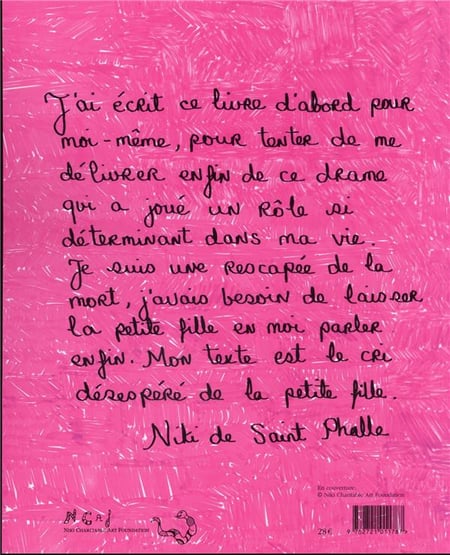 J'ai écrit ce livre d'abord pour
moi-même, pour tenter de me
délivrer enfin de ce drame
qui a joué un rôle si
déterminant dans ma vie.
Je suis une rescapée de la
mort, j'avais besoin de laisser
la petite fille en moi parler
enfin. Mon texte est le cri
désespéré de la petite fille.
Niki de Saint Phalle
En couverture:
© Niki Charitable Art Foundation
NCAF
Niki Charitable Art Foundation
28€